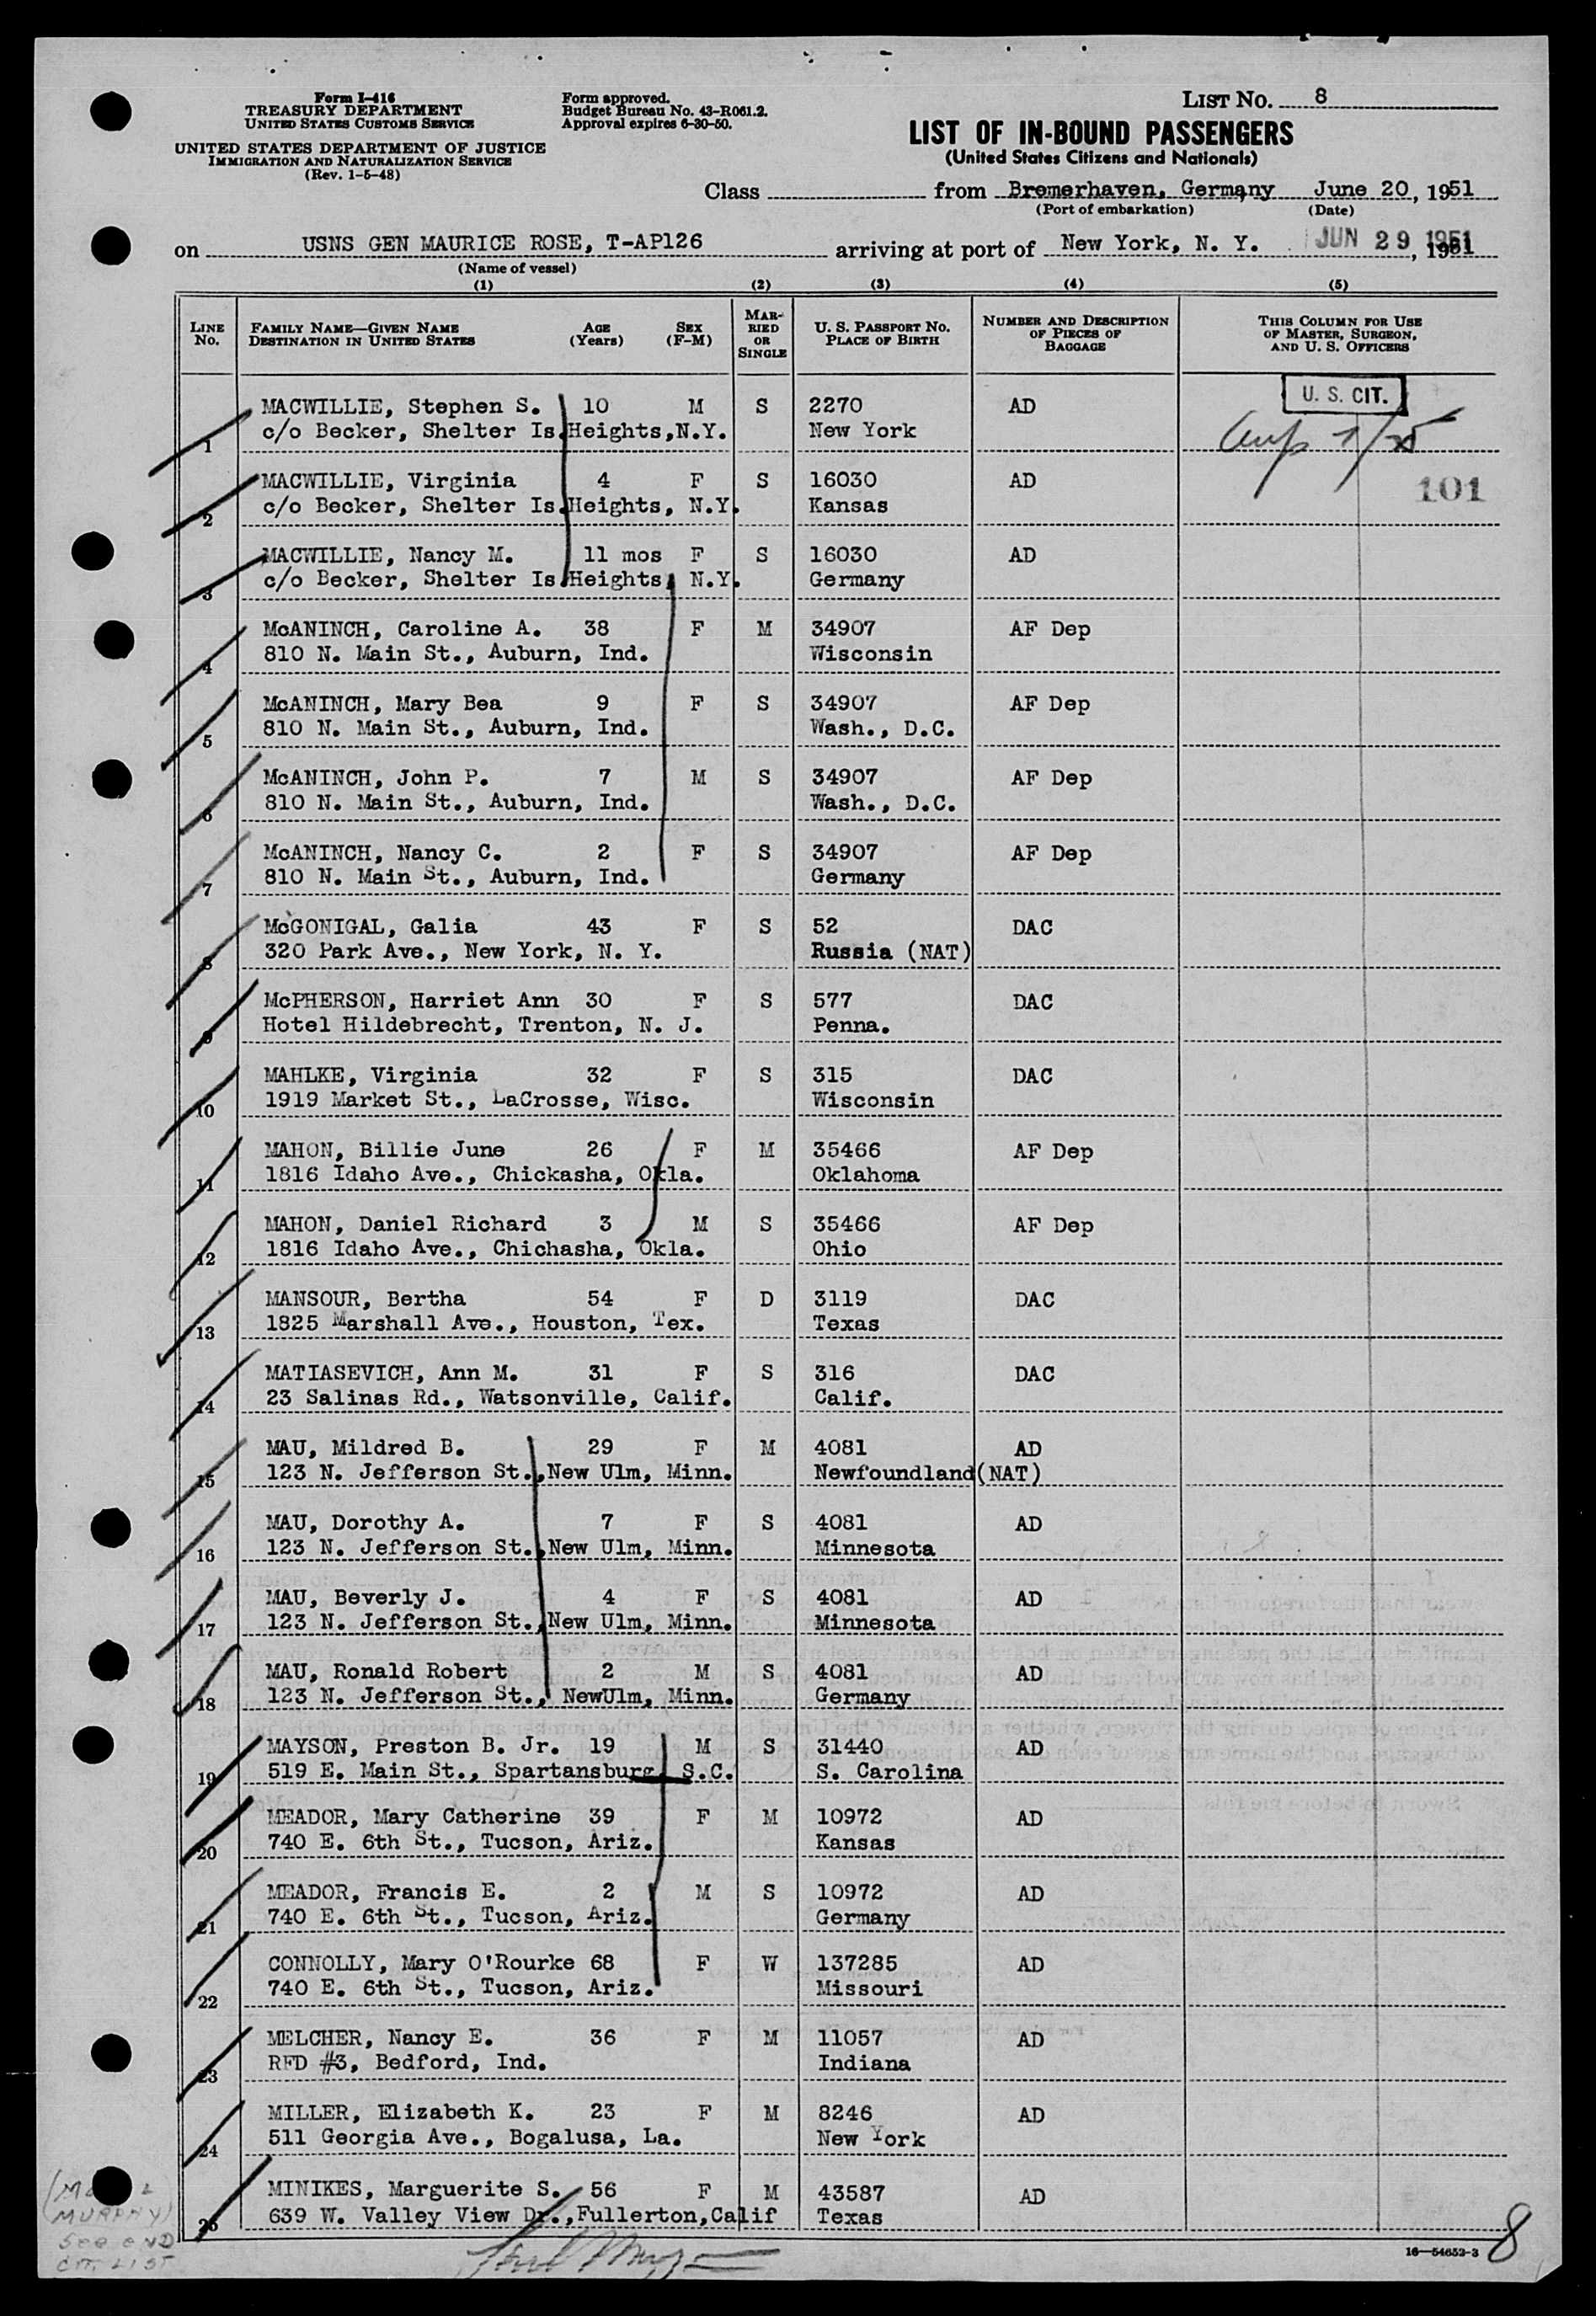 Form I-416
TREASURY DEPARTMENT
UNITED STATES CUSTOMS SERVICE
UNITED STATES DEPARTMENT OF JUSTICE
IMMIGRATION AND NATURALIZATION SERVICE
(Rev. 1-5-48)
Form approved.
Budget Bureau No. 43-R061.2.
Approval expires 6-30-50.
LIST No. 8
LIST OF IN-BOUND PASSENGERS
(United States Citizens and Nationals)
Class from Bremerhaven, Germany June 20, 1951
(Port of embarkation) (Date)
on USNS GEN MAURICE ROSE, T-AP126 arriving at port of New York, N. Y. JUN 29 1951, 1951
(Name of vessel)
(1) (2) (3) (4) (5)
LINE No. FAMILY NAME—GIVEN NAME DESTINATION IN UNITED STATES AGE (Years) SEX (F-M) MARRIED OR SINGLE U. S. PASSPORT NO. PLACE OF BIRTH NUMBER AND DESCRIPTION OF PIECES OF BAGGAGE THIS COLUMN FOR USE OF MASTER, SURGEON, AND U. S. OFFICERS
U. S. CIT.
MACWILLIE, Stephen S. 10 M S 2270 AD
1 c/o Becker, Shelter Is.Heights,N.Y. New York
MACWILLIE, Virginia 4 F S 16030 AD 101
2 c/o Becker, Shelter Is.Heights, N.Y. Kansas
MACWILLIE, Nancy M. 11 mos F S 16030 AD
3 c/o Becker, Shelter Is.Heights, N.Y. Germany
McANINCH, Caroline A. 38 F M 34907 AF Dep
4 810 N. Main St., Auburn, Ind. Wisconsin
McANINCH, Mary Bea 9 F S 34907 AF Dep
5 810 N. Main St., Auburn, Ind. Wash., D.C.
McANINCH, John P. 7 M S 34907 AF Dep
6 810 N. Main St., Auburn, Ind. Wash., D.C.
McANINCH, Nancy C. 2 F S 34907 AF Dep
7 810 N. Main St., Auburn, Ind. Germany
McGONIGAL, Galia 43 F S 52 DAC
8 320 Park Ave., New York, N. Y. Russia (NAT)
McPHERSON, Harriet Ann 30 F S 577 DAC
9 Hotel Hildebrecht, Trenton, N. J. Penna.
MAHLKE, Virginia 32 F S 315 DAC
10 1919 Market St., LaCrosse, Wisc. Wisconsin
MAHON, Billie June 26 F M 35466 AF Dep
11 1816 Idaho Ave., Chickasha, Okla. Oklahoma
MAHON, Daniel Richard 3 M S 35466 AF Dep
12 1816 Idaho Ave., Chichasha, Okla. Ohio
MANSOUR, Bertha 54 F D 3119 DAC
13 1825 Marshall Ave., Houston, Tex. Texas
MATIASEVICH, Ann M. 31 F S 316 DAC
14 23 Salinas Rd., Watsonville, Calif. Calif.
MAU, Mildred B. 29 F M 4081 AD
15 123 N. Jefferson St.,New Ulm, Minn. Newfoundland(NAT)
MAU, Dorothy A. 7 F S 4081 AD
16 123 N. Jefferson St.,New Ulm, Minn. Minnesota
MAU, Beverly J. 4 F S 4081 AD
17 123 N. Jefferson St.,New Ulm, Minn. Minnesota
MAU, Ronald Robert 2 M S 4081 AD
18 123 N. Jefferson St., NewUlm, Minn. Germany
MAYSON, Preston B. Jr. 19 M S 31440 AD
19 519 E. Main St., Spartansburg, S.C. S. Carolina
MEADOR, Mary Catherine 39 F M 10972 AD
20 740 E. 6th St., Tucson, Ariz. Kansas
MEADOR, Francis E. 2 M S 10972 AD
21 740 E. 6th St., Tucson, Ariz. Germany
CONNOLLY, Mary O'Rourke 68 F W 137285 AD
22 740 E. 6th St., Tucson, Ariz. Missouri
MELCHER, Nancy E. 36 F M 11057 AD
23 RFD #3, Bedford, Ind. Indiana
MILLER, Elizabeth K. 23 F M 8246 AD
24 511 Georgia Ave., Bogalusa, La. New York
MINIKES, Marguerite S. 56 F M 43587 AD
25 639 W. Valley View Dr.,Fullerton,Calif Texas
MURPHY)
SEE END
CIT. LIST
16—54652-3 8